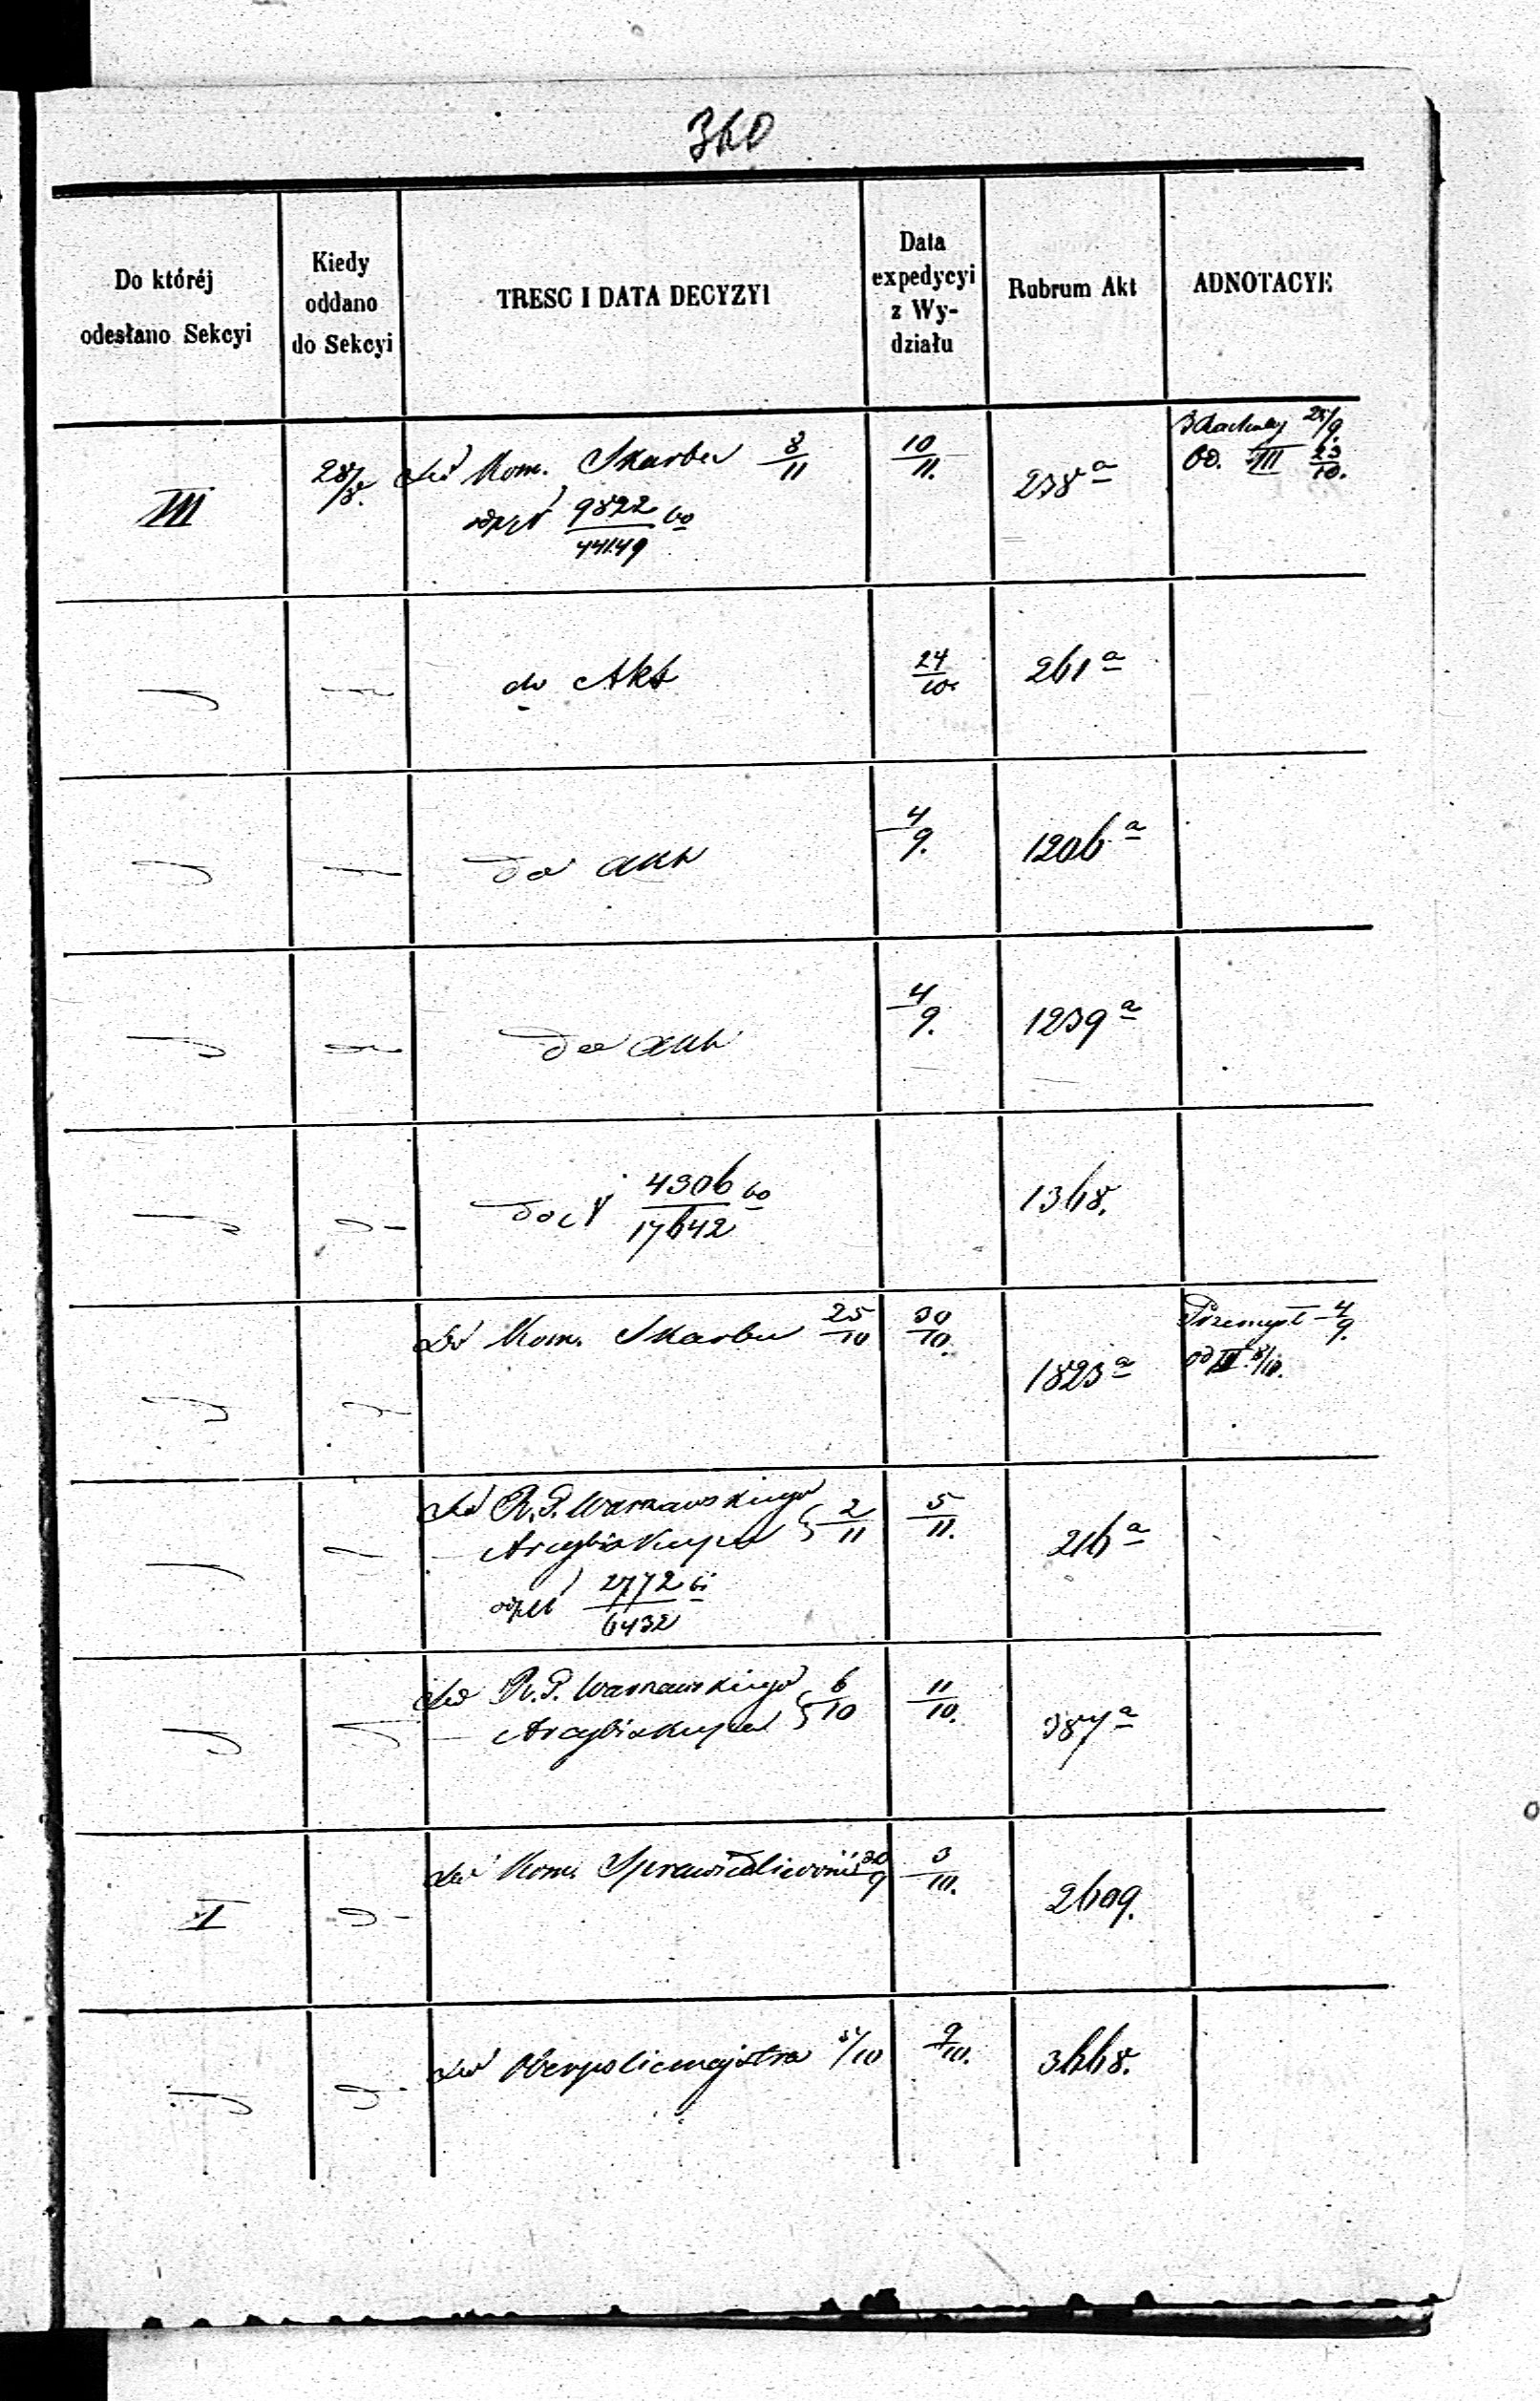 360
Do któréj
odesłano Sekcyi
Kiedy
oddano
do Sekcyi
TRESC I DATA DECYZYI
Data
expedycyi
z Wy-
działu
Rubrum Akt
ADNOTACYE
III
28/8.
do Kom. Skarbu 8/11
9822/44149 60
10/11.
238 a
25/9.
Od. III 23/10.
do Akt
24/10.
261 a
do akt
4/9.
1206 a
do akt
4/9.
1239 a
do 4306/17642 60
1368.
do Kom. Skarbu 25/10
30/10.
1823 a
Przemysł 4/9.
od III 8/10.
do R. P. Warszawskiego
Arcybiskupa 2/11
2772/6432 61
5/11.
216 a
do R. P. Warszawskiego
Arcybiskupa 6/10
11/10.
387 a
I
do Kom. Sprawiedliwości 30/9
3/10.
2609.
do Oberpolicmajstra /10
9/10.
3668.